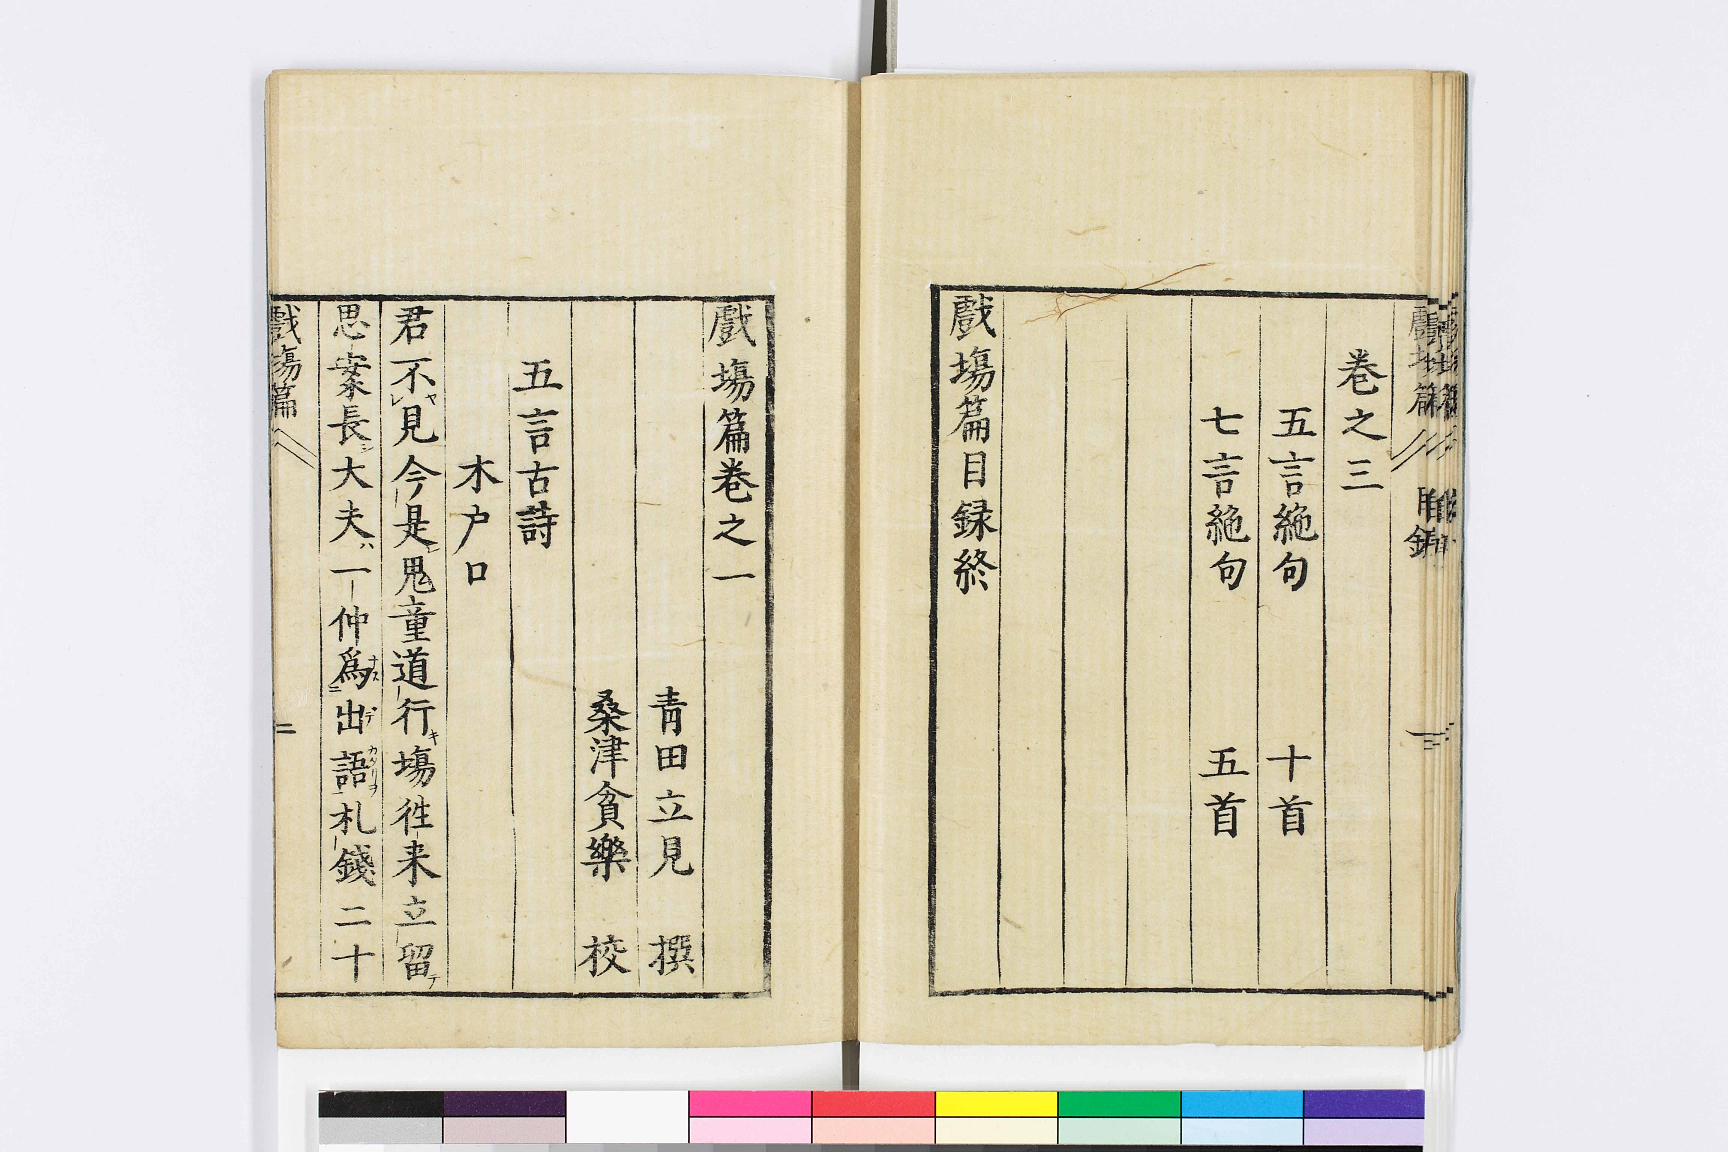 卷之三
五言絶句 十首
七言絶句 五首
戲場篇目録終
戲場篇卷之一
青田立見 撰
桑津貧樂 校
五言古詩
木户口
君不見今是鬼童道行場徃来立留
思案長大夫一仲爲出語札錢二十
戲場篇 二